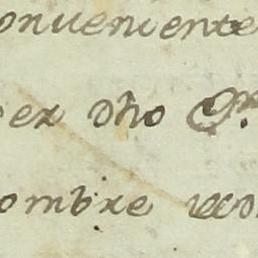 onveniente
ex dho Gr.
ombre